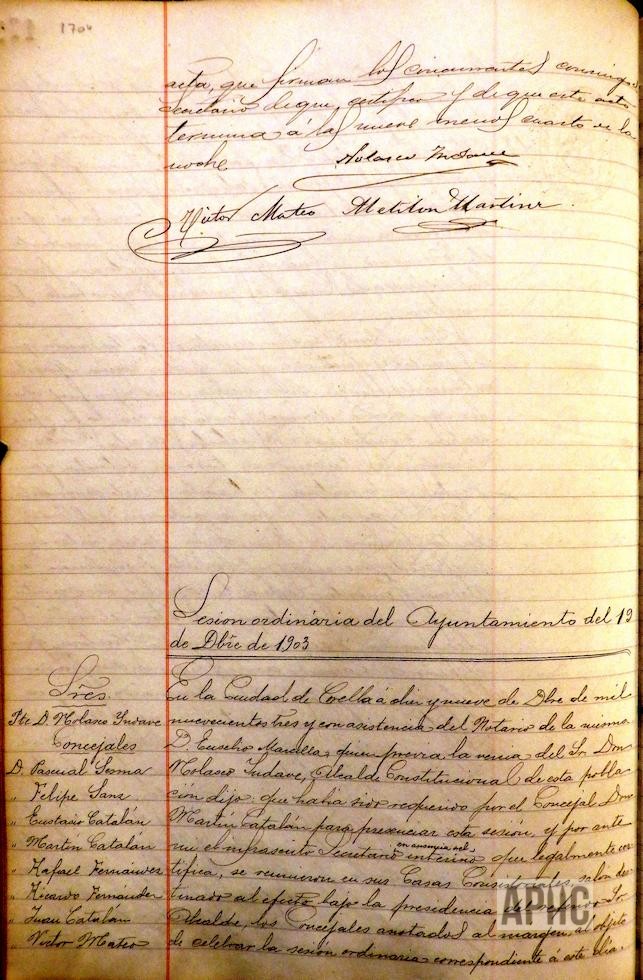 1704
acta, que firman los concurrentes conmigo
Secretario de que certifico y de que este acto
termina á las nueve menos cuarto de la
noche
Nolasco Indave
Victor Mateo Meliton Martinez
Sesion ordinária del Ayuntamiento del 19
de Dbre de 1903
Sres
Pte D. Nolasco Yndave
Concejales
D. Pascual Sesma
" Felipe Sanz
" Eustasio Catalán
" Martin Catalán
" Rafael Fernández
" Ricardo Fernández
" Juan Catalán
" Victor Mateo
En la Ciudad de Corella á diez y nueve de Dbre de mil
nuevecientos tres y con asistencia del Notario de la misma
D. Eusebio quien previa la venia del Sr. Don
Nolasco Indave, Alcalde Constitucional de esta pobla-
ción dijo: que habia sido requerido por el Concejal Don
Martin Catalán para presenciar esta sesión, y por ante
mi el infrascrito Secretario interino en ausencia del que legalmente cer-
tifica, se reunieron en sus Casas Consistoriales, salón des-
tinado al efecto bajo la presidencia del referido Sr.
Alcalde, los Concejales anotados al margen, al objeto
de celebrar la sesión ordinaria correspondiente á este dia.
APHC